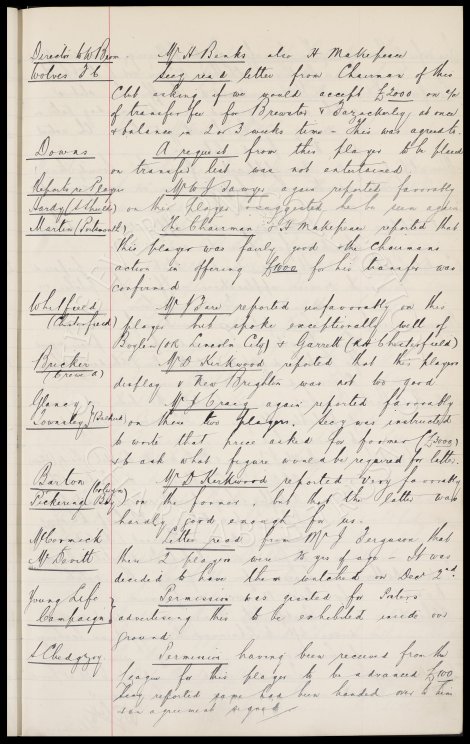 Director to W Brom. Mr H Banks also H Makepeace
Wolves F.C Secy read letter from Chairman of this
Club asking if we would accept £2000 on a/c
of transfer fee for Brewster & at once
& balance in 2 or 3 weeks time - This was agreed to.
Downs A request from this player to be placed
on transfer list was not entertained
Reports re Player Mr W J Sawyer again reported favorably
Hardy (S. Shields) on this player & suggested he be seen again
Martin (Portsmouth) The Chairman & H Makepeace reported that
this player was fairly good & the Chairmans
action in offering £1000 for his transfer was
confirmed
Whitfield Mr reported unfavorably on this
(Chesterfield) player but spoke exceptionally well of
(OR Lincoln City) & Garrett (Chesterfield)
Mr D Kirkwood reported that this players
(Crewe A) display v New Brighton was not too good
Clancy Mr J Craig again reported favorably
Townsley on these two players. Secy was instructed
to write that price asked for former (£3000)
& to ask what figure would be required for latter.
Barton (Colwyn Mr D Kirkwood reported very favorably
Pickering Bay) on the former, but that the latter was
hardly good enough for us.
McCormick Letter read from Mr J Ferguson that
McDevitt these 2 players were years of age - It was
decided to have them watched on Decr 2nd.
Young Life Permission was granted for Posters
Campaign advertising this to be exhibited inside our
ground.
A Chedgzoy Permission having been received from the
League for this player to be advanced £100
Secy reported same had been handed over to him
& an agreement signed